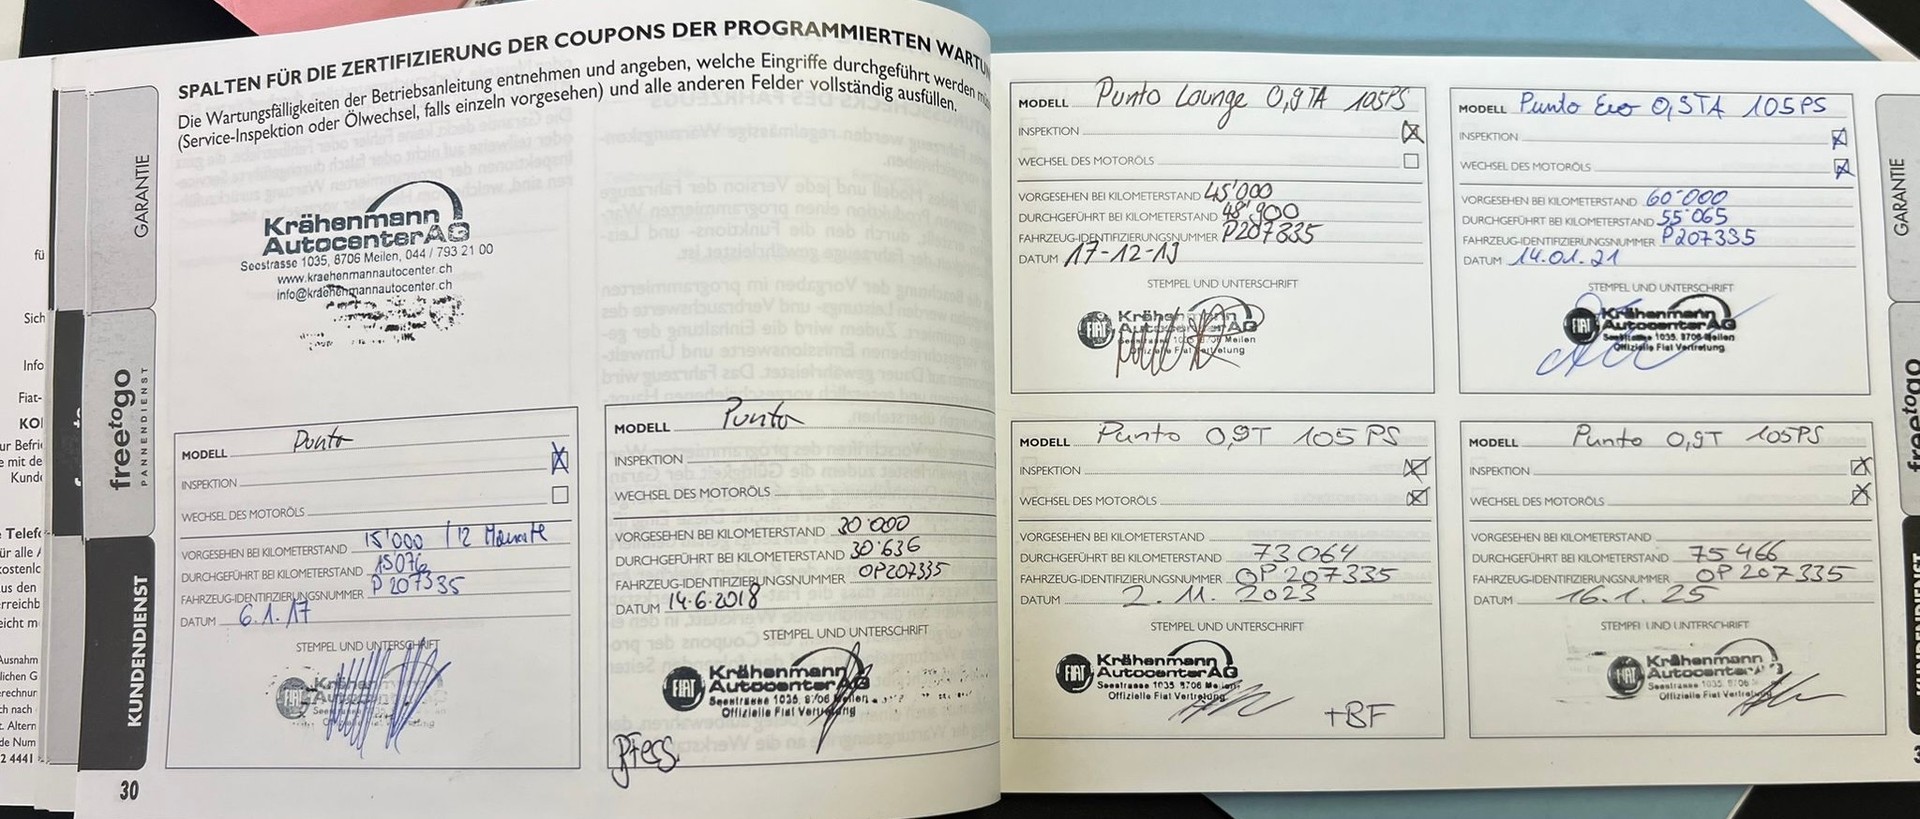 SPALTEN FÜR DIE ZERTIFIZIERUNG DER COUPONS DER PROGRAMMIERTEN WARTUN
Die Wartungsfälligkeiten der Betriebsanleitung entnehmen und angeben, welche Eingriffe durchgeführt werden
(Service-Inspektion oder Ölwechsel, falls einzeln vorgesehen) und alle anderen Felder vollständig ausfüllen.
GARANTIE
freetogo
PANNENDIENST
KUNDENDIENST
Krähenmann
Autocenter AG
Seestrasse 1035, 8706 Meilen, 044 / 793 21 00
www.kraehenmannautocenter.ch
info@kraehenmannautocenter.ch
MODELL Punto
INSPEKTION
WECHSEL DES MOTORÖLS
VORGESEHEN BEI KILOMETERSTAND 15'000 / 12 Monate
DURCHGEFÜHRT BEI KILOMETERSTAND 15076
FAHRZEUG-IDENTIFIZIERUNGSNUMMER P207335
DATUM 6.1.17
STEMPEL UND UNTERSCHRIFT
FIAT
Krähenmann
30
MODELL Punto
INSPEKTION
WECHSEL DES MOTORÖLS
VORGESEHEN BEI KILOMETERSTAND 30'000
DURCHGEFÜHRT BEI KILOMETERSTAND 30'636
FAHRZEUG-IDENTIFIZIERUNGSNUMMER OP207335
DATUM 14.6.2018
STEMPEL UND UNTERSCHRIFT
FIAT
Krähenmann
Autocenter AG
Seestrasse 1035, 8706 Meilen
Offizielle Fiat Vertretung
MODELL Punto Lounge 0,9TA 105PS
INSPEKTION
WECHSEL DES MOTORÖLS
VORGESEHEN BEI KILOMETERSTAND 45'000
DURCHGEFÜHRT BEI KILOMETERSTAND 48'900
FAHRZEUG-IDENTIFIZIERUNGSNUMMER P207335
DATUM 17-12-19
STEMPEL UND UNTERSCHRIFT
FIAT
MODELL Punto Evo 0,9TA 105PS
INSPEKTION
WECHSEL DES MOTORÖLS
VORGESEHEN BEI KILOMETERSTAND 60'000
DURCHGEFÜHRT BEI KILOMETERSTAND 55'065
FAHRZEUG-IDENTIFIZIERUNGSNUMMER P207335
DATUM 14.01.21
STEMPEL UND UNTERSCHRIFT
FIAT
Krähenmann
Autocenter AG
Seestrasse 1035, 8706 Meilen
Offizielle Fiat Vertretung
MODELL Punto 0,9T 105PS
INSPEKTION
WECHSEL DES MOTORÖLS
VORGESEHEN BEI KILOMETERSTAND
DURCHGEFÜHRT BEI KILOMETERSTAND 73064
FAHRZEUG-IDENTIFIZIERUNGSNUMMER OP207335
DATUM 2.11.2023
STEMPEL UND UNTERSCHRIFT
FIAT
Krähenmann
Autocenter AG
Seestrasse 1035, 8706 Meilen
Offizielle Fiat Vertretung
+BF
MODELL Punto 0,9T 105PS
INSPEKTION
WECHSEL DES MOTORÖLS
VORGESEHEN BEI KILOMETERSTAND
DURCHGEFÜHRT BEI KILOMETERSTAND 75466
FAHRZEUG-IDENTIFIZIERUNGSNUMMER OP207335
DATUM 16.1.25
STEMPEL UND UNTERSCHRIFT
FIAT
Krähenmann
Autocenter AG
Seestrasse 1035, 8706
Offizielle Fiat Vertretung
GARANTIE
freetogo